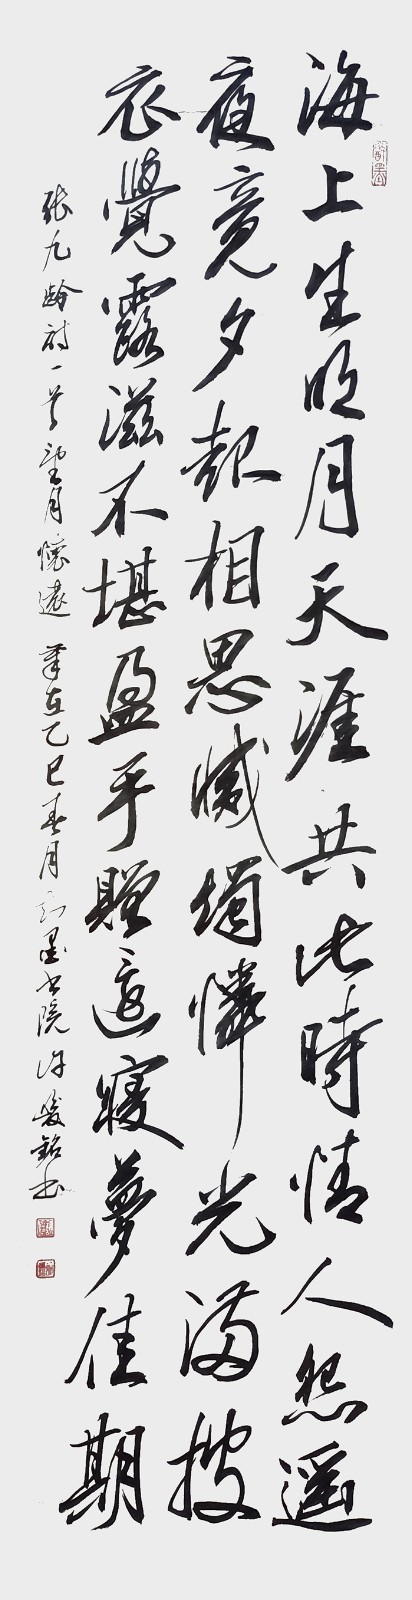 海上生明月天涯共此時情人怨遥
夜竟夕起相思滅燭憐光滿披
衣覺露滋不堪盈手贈還寢夢佳期
張九齡詩一首望月懷遠 歲在乙巳春月 墨書院許銘书